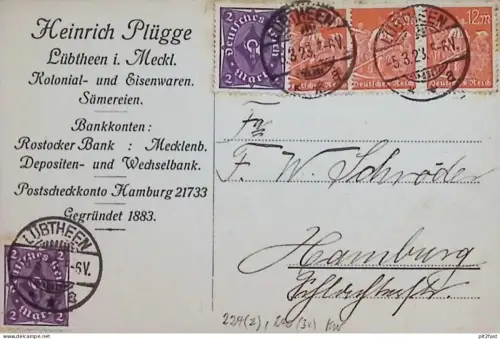 Heinrich Plügge
Lübtheen i. Meckl.
Kolonial- und Eisenwaren.
Sämereien.
Bankkonten:
Rostocker Bank : Mecklenb.
Depositen- und Wechselbank.
Postscheckkonto Hamburg 21733
Gegründet 1883.
2 2
Deutsches Reich
2 Mark 2
LÜBTHEEN
5.3.23. -6V.
LÜBTHEEN
5.3.23. -6V.
12 M
Deutsches Reich
Fa
F. W. Schröder
Hamburg
LÜBTHEEN
-6V.
2 2
2 Mark 2